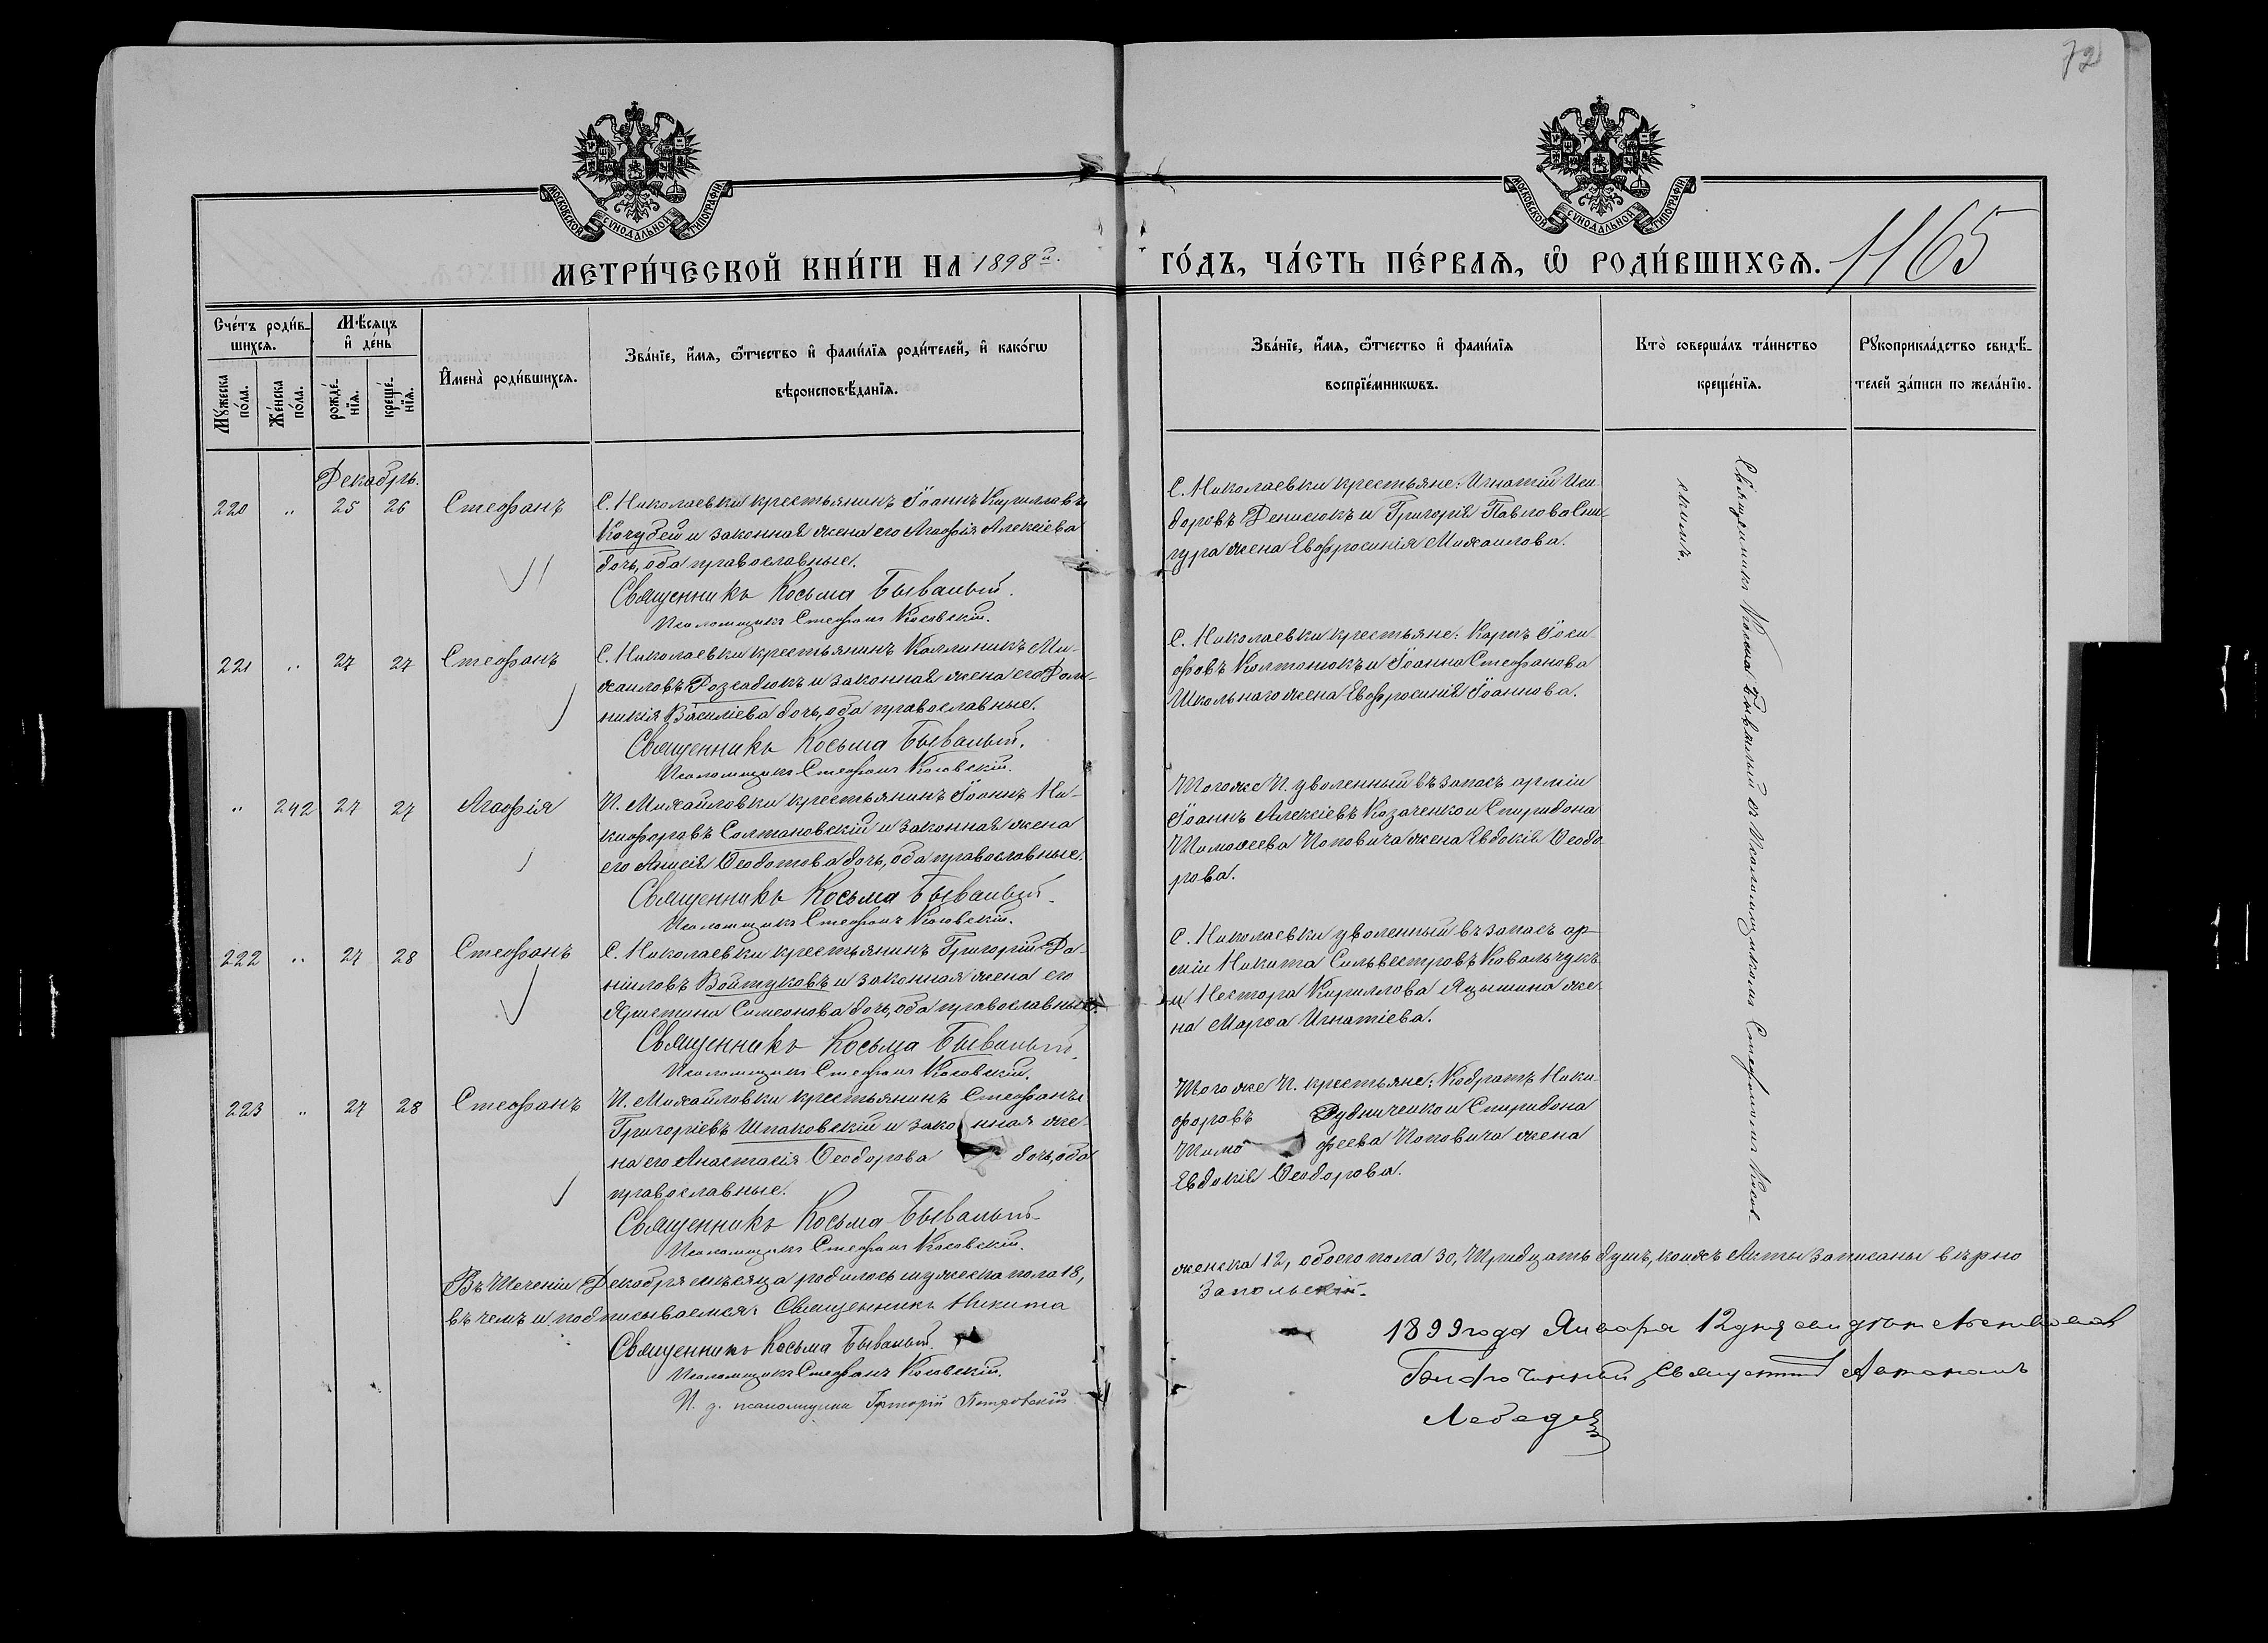 72
МОСКОВСКОЙ СУНОДАЛЬНОЙ ТИПОГРАФІИ
МОСКОВСКОЙ СУНОДАЛЬНОЙ ТИПОГРАФІИ
МЕТРИ́ЧЕСКОЙ КНИ́ГИ НА 1898й.
ГО́ДЪ, ЧА́СТЬ ПЕ́РВАѦ, Ѽ РОДИ́ВШИХСѦ. 1165
Сче́тъ роди́в-
шихсѧ.
Мꙋ́жеска по́ла.
Же́нска по́ла.
Мѣ́сѧцъ
и҆ де́нь
рожде́-нїѧ.
креще́-нїѧ.
И҆мена̀ роди́вшихсѧ.
Зва́нїе, и҆́мѧ, ѻ҆́тчество и҆ фами́лїѧ роди́телей, и҆ како́гѡ
вѣроисповѣ́данїѧ.
Зва́нїе, и҆́мѧ, ѻ҆́тчество и҆ фами́лїѧ
воспрїе́мникѡвъ.
Кто̀ соверша́лъ та́инство
креще́нїѧ.
Рꙋкоприкла́дство свидѣ́-
телей за́писи по жела́нїю.
Декабрь.
220 „ 25 26 Стефанъ
С. Николаевки крестьянинъ Іоаннъ Кирилловъ
Кочубей и законная жена его Агафія Алексіева
дочь, оба православные.
Священникъ Косьма Бывалый.
Псаломщикъ Стефанъ Косовскій.
С. Николаевки крестьяне: Игнатій Иси-
доровъ Денисюкъ и Григорія Павлова Сни-
гура жена Евфросинія Михаилова.
221 „ 27 27 Стефанъ
С. Николаевки крестьянинъ Каллиникъ Ми-
хаиловъ Розсадюкъ и законная жена его Дом-
никія Василіева дочь, оба православные.
Священникъ Косьма Бывалый.
Псаломщикъ Стефанъ Косовскій.
С. Николаевки крестьяне: Карпъ Іоси-
фовъ Колтонюкъ и Іоанна Стефанова
Школьнаго жена Евфросинія Іоаннова.
„ 242 27 27 Агафія
П. Михайловки крестьянинъ Іоаннъ Ни-
кифоровъ Солтановскій и законная жена
его Анисія Ѳеодотова дочь, оба православные.
Священникъ Косьма Бывалый.
Псаломщикъ Стефанъ Косовскій.
Того же П. уволенный въ запасъ арміи
Іоаннъ Алексіевъ Казаченко и Спиридона
Тимоѳеева Поповича жена Евдокія Ѳеодо-
рова.
222 „ 27 28 Стефанъ
С. Николаевки крестьянинъ Григорій Да-
ніиловъ Войтуковъ и законная жена его
Христина Симеонова дочь, оба православные.
Священникъ Косьма Бывалый.
Псаломщикъ Стефанъ Косовскій.
С. Николаевки уволенный въ запасъ ар-
міи Никита Сильвестровъ Ковальчукъ
и Нестора Кириллова Яцышина же-
на Марѳа Игнатіева.
223 „ 27 28 Стефанъ
П. Михайловки крестьянинъ Стефанъ
Григоріевъ Шпаковскій и законная же-
на его Анастасія Ѳеодорова дочь, оба
православные.
Священникъ Косьма Бывалый.
Псаломщикъ Стефанъ Косовскій.
Того же П. крестьяне: Кодратъ Ники-
форовъ Дудниченко и Спиридона
Тимофеева Поповича жена
Евдокія Ѳеодорова.
Священникъ Косьма Бывалый съ Псаломщикомъ Стефаномъ Косов-
скимъ.
Въ Теченіи Декабря мѣсяца родилось мужеска пола 18,
женска 12, обоего пола 30, Тридцать душъ, коихъ Акты записаны вѣрно
въ чемъ и подписываемся: Священникъ Никита
Запольскій.
Священникъ Косьма Бывалый.
Псаломщикъ Стефанъ Косовскій.
И. д. псаломщика Григорій Петровскій
1899 года Января 12 дня свидѣтельствовалъ
Благочинный Священникъ Автономъ
Лебедевъ